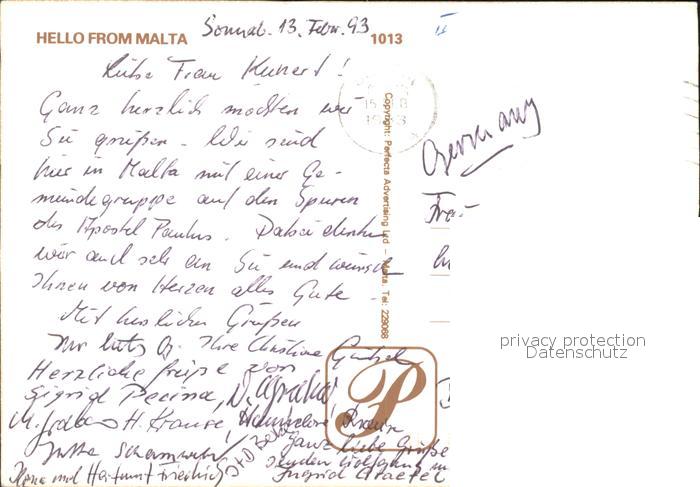 HELLO FROM MALTA
Sonnab. 13. Febr. 93
1013
Liebe Frau Kunert!
Ganz herzlich möchten wir
Sie grüßen. Wir sind
hier in Malta mit einer Ge-
meindegruppe auf den Spuren
des Apostel Paulus. Dabei denken
wir auch sehr an Sie und wünschen
Ihnen von Herzen alles Gute.
Mit herzlichen Grüßen
Ihre Christine
Herzliche Grüße von
Sigrid
H. Krause, Hannelore
Jutta
ganz liebe Grüße
senden Wolfgang u
Ingrid
und Hartmut Friedrich
Copyright: Perfecta Advertising Ltd – Malta. Tel: 229068
Germany
Frau
P
privacy protection
Datenschutz